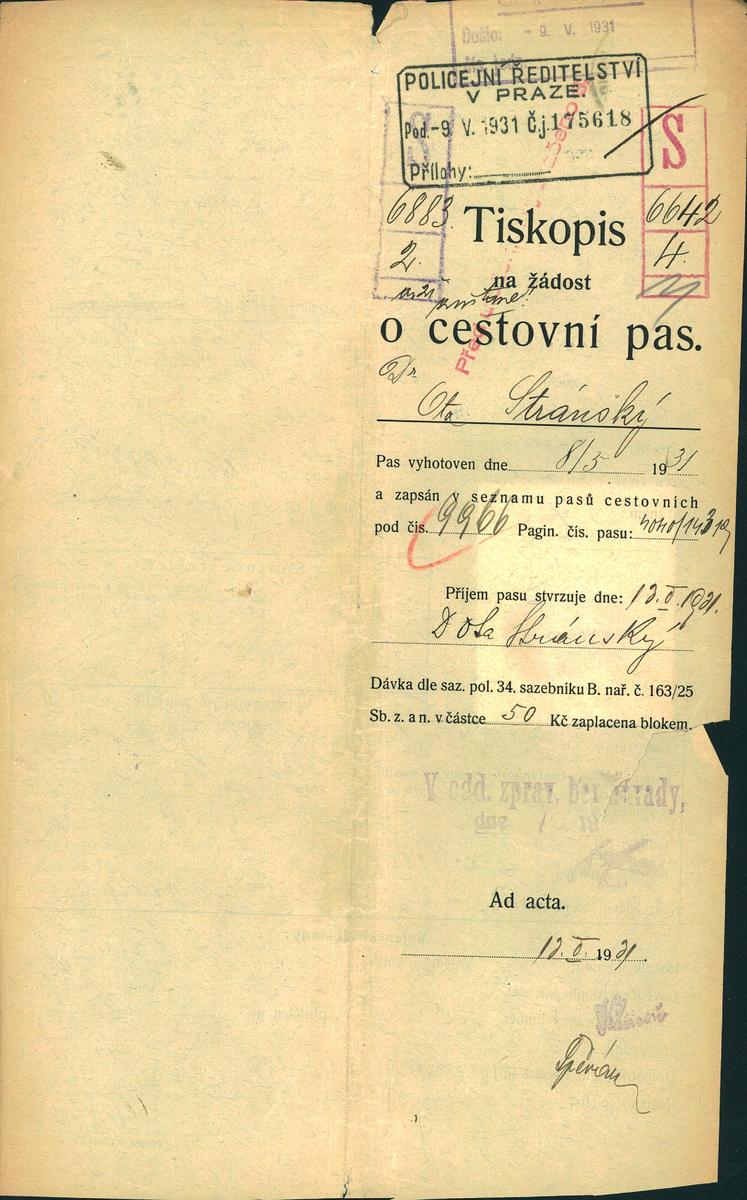 Došlo: - 9. V. 1931
POLICEJNÍ ŘEDITELSTVÍ
V PRAZE.
Pod. -9. V. 1931 Č.j. 175618
Přílohy:
S
S
6883
6642
2.
4.
Tiskopis
na žádost
o cestovní pas.
Dr
Ota Stránský
Pas vyhotoven dne 8/5 1931
a zapsán v seznamu pasů cestovních
pod čís. 9966 Pagin. čís. pasu:
Příjem pasu stvrzuje dne:
D Ota Stránský
Dávka dle saz. pol. 34. sazebníku B. nař. č. 163/25
Sb. z. a n. v částce 50 Kč zaplacena blokem.
V odd. zprav. bez závady,
dne / 19
Ad acta.
1931.